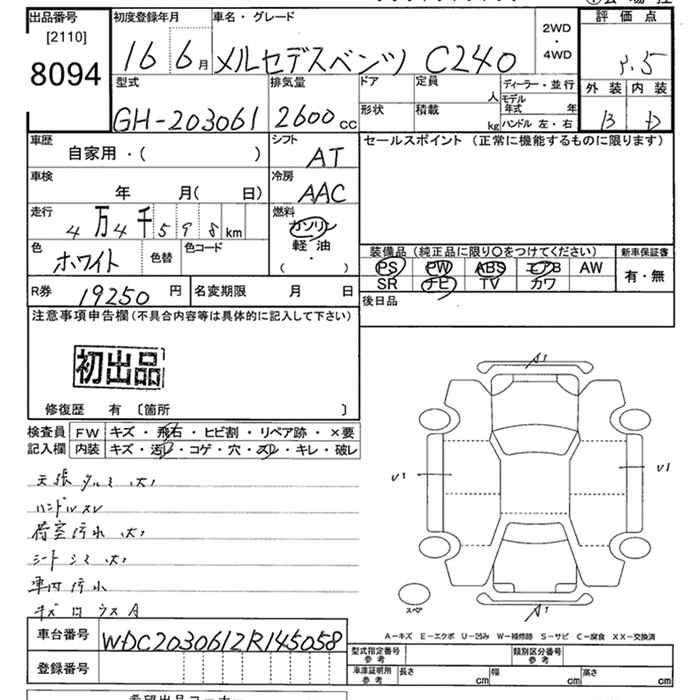 出品番号 初度登録年月 車名・グレード 評価点
[2110] 16 6月 メルセデスベンツ C240 2WD・4WD
8094
型式 排気量 ドア 定員 人 ディーラー・並行 外装 内装
GH-203061 2600cc 形状 積載 kg モデル年式 年 B D
ハンドル 左・右
車歴 シフト セールスポイント (正常に機能するものに限ります)
自家用・( ) AT
車検 冷房
年 月( 日) AAC
走行 燃料
4万4千598km ガソリン
軽油
( ・ )
色 色替 色コード 装備品 (純正品に限り○をつけてください) 新車保証書
ホワイト PS PW ABS エアB AW 有・無
SR ナビ TV カワ
R券 19250円 名変期限 月 日 後日品
注意事項申告欄 (不具合内容等は具体的に記入して下さい)
初出品
修復歴 有 [箇所 ]
検査員 FW キズ・飛石・ヒビ割・リペア跡・×要
記入欄 内装 キズ・汚レ・コゲ・穴・スレ・キレ・破レ
天張タルミ 大)
ハンドルスレ
荷室汚れ 大)
シートシミ 大)
車内汚れ
A1
U1 U1
A1
スペア
A-キズ E-エクボ U-凹み W-補修跡 S-サビ C-腐食 XX-交換済
車台番号 WDC2030612R145058
型式指定番号 参考 類別区分番号 参考
登録番号 車庫証明用 参考 長さ cm 幅 cm 高さ cm
希望出品コーナー